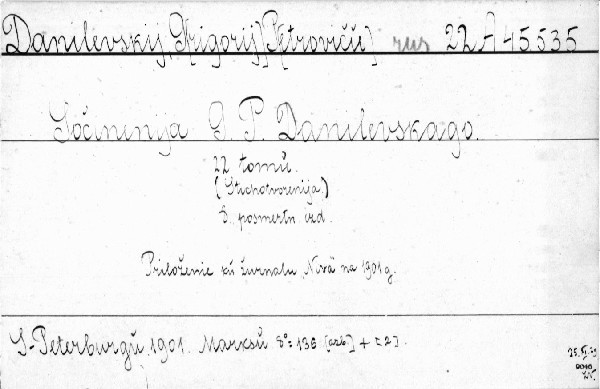 Danilevskij, Grigorij P[etrovič] rus 22 A 45535
Sočinenija G. P. Danilevskago.
22 tomŭ.
(Stichotvorenija.)
8. posmertn izd.
Priloženie kŭ žurnalu „Niva" na 1901 g.
S-Peterburgŭ, 1901. Marksŭ 8°: 136
9016